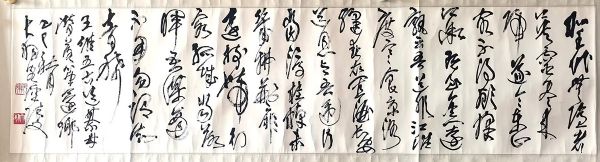 聖代無隱者
英靈盡來
歸遂令東山
客不得顧採
薇既至金門遠
孰云吾道非江淮
度寒食京洛
縫春衣置酒長安
道同心與我違行
當浮桂棹未
幾拂荊扉
遠樹帶行
客孤城當落
暉吾謀適
不用勿謂知
音稀
王維五古送綦毋
潛落第還鄉